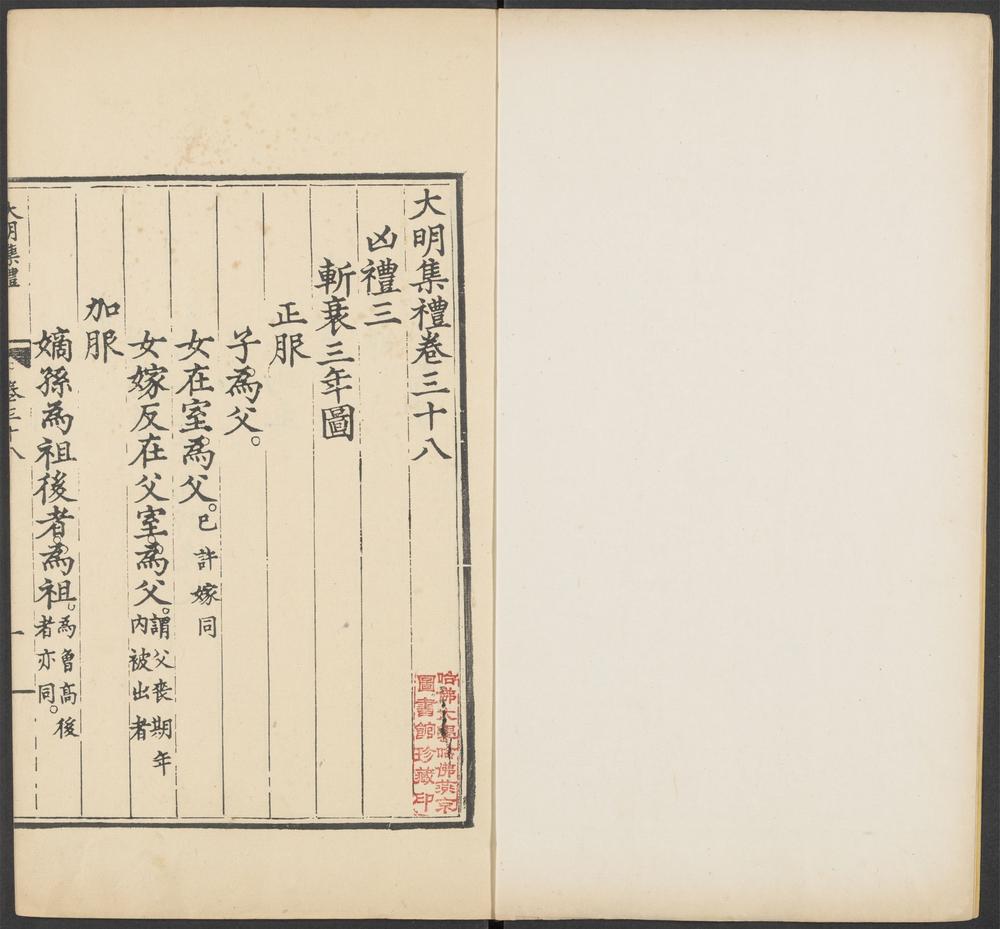 大明集禮卷三十八
凶禮三
斬衰三年圖
正服
子爲父。
女在室爲父。已許嫁同
女嫁反在父室爲父。謂父喪期年
內被出者
加服
嫡孫爲祖後者爲祖。爲曾高後
者亦同。
大明集禮
卷三十八
一
哈佛大學哈佛燕京
圖書館珍藏印